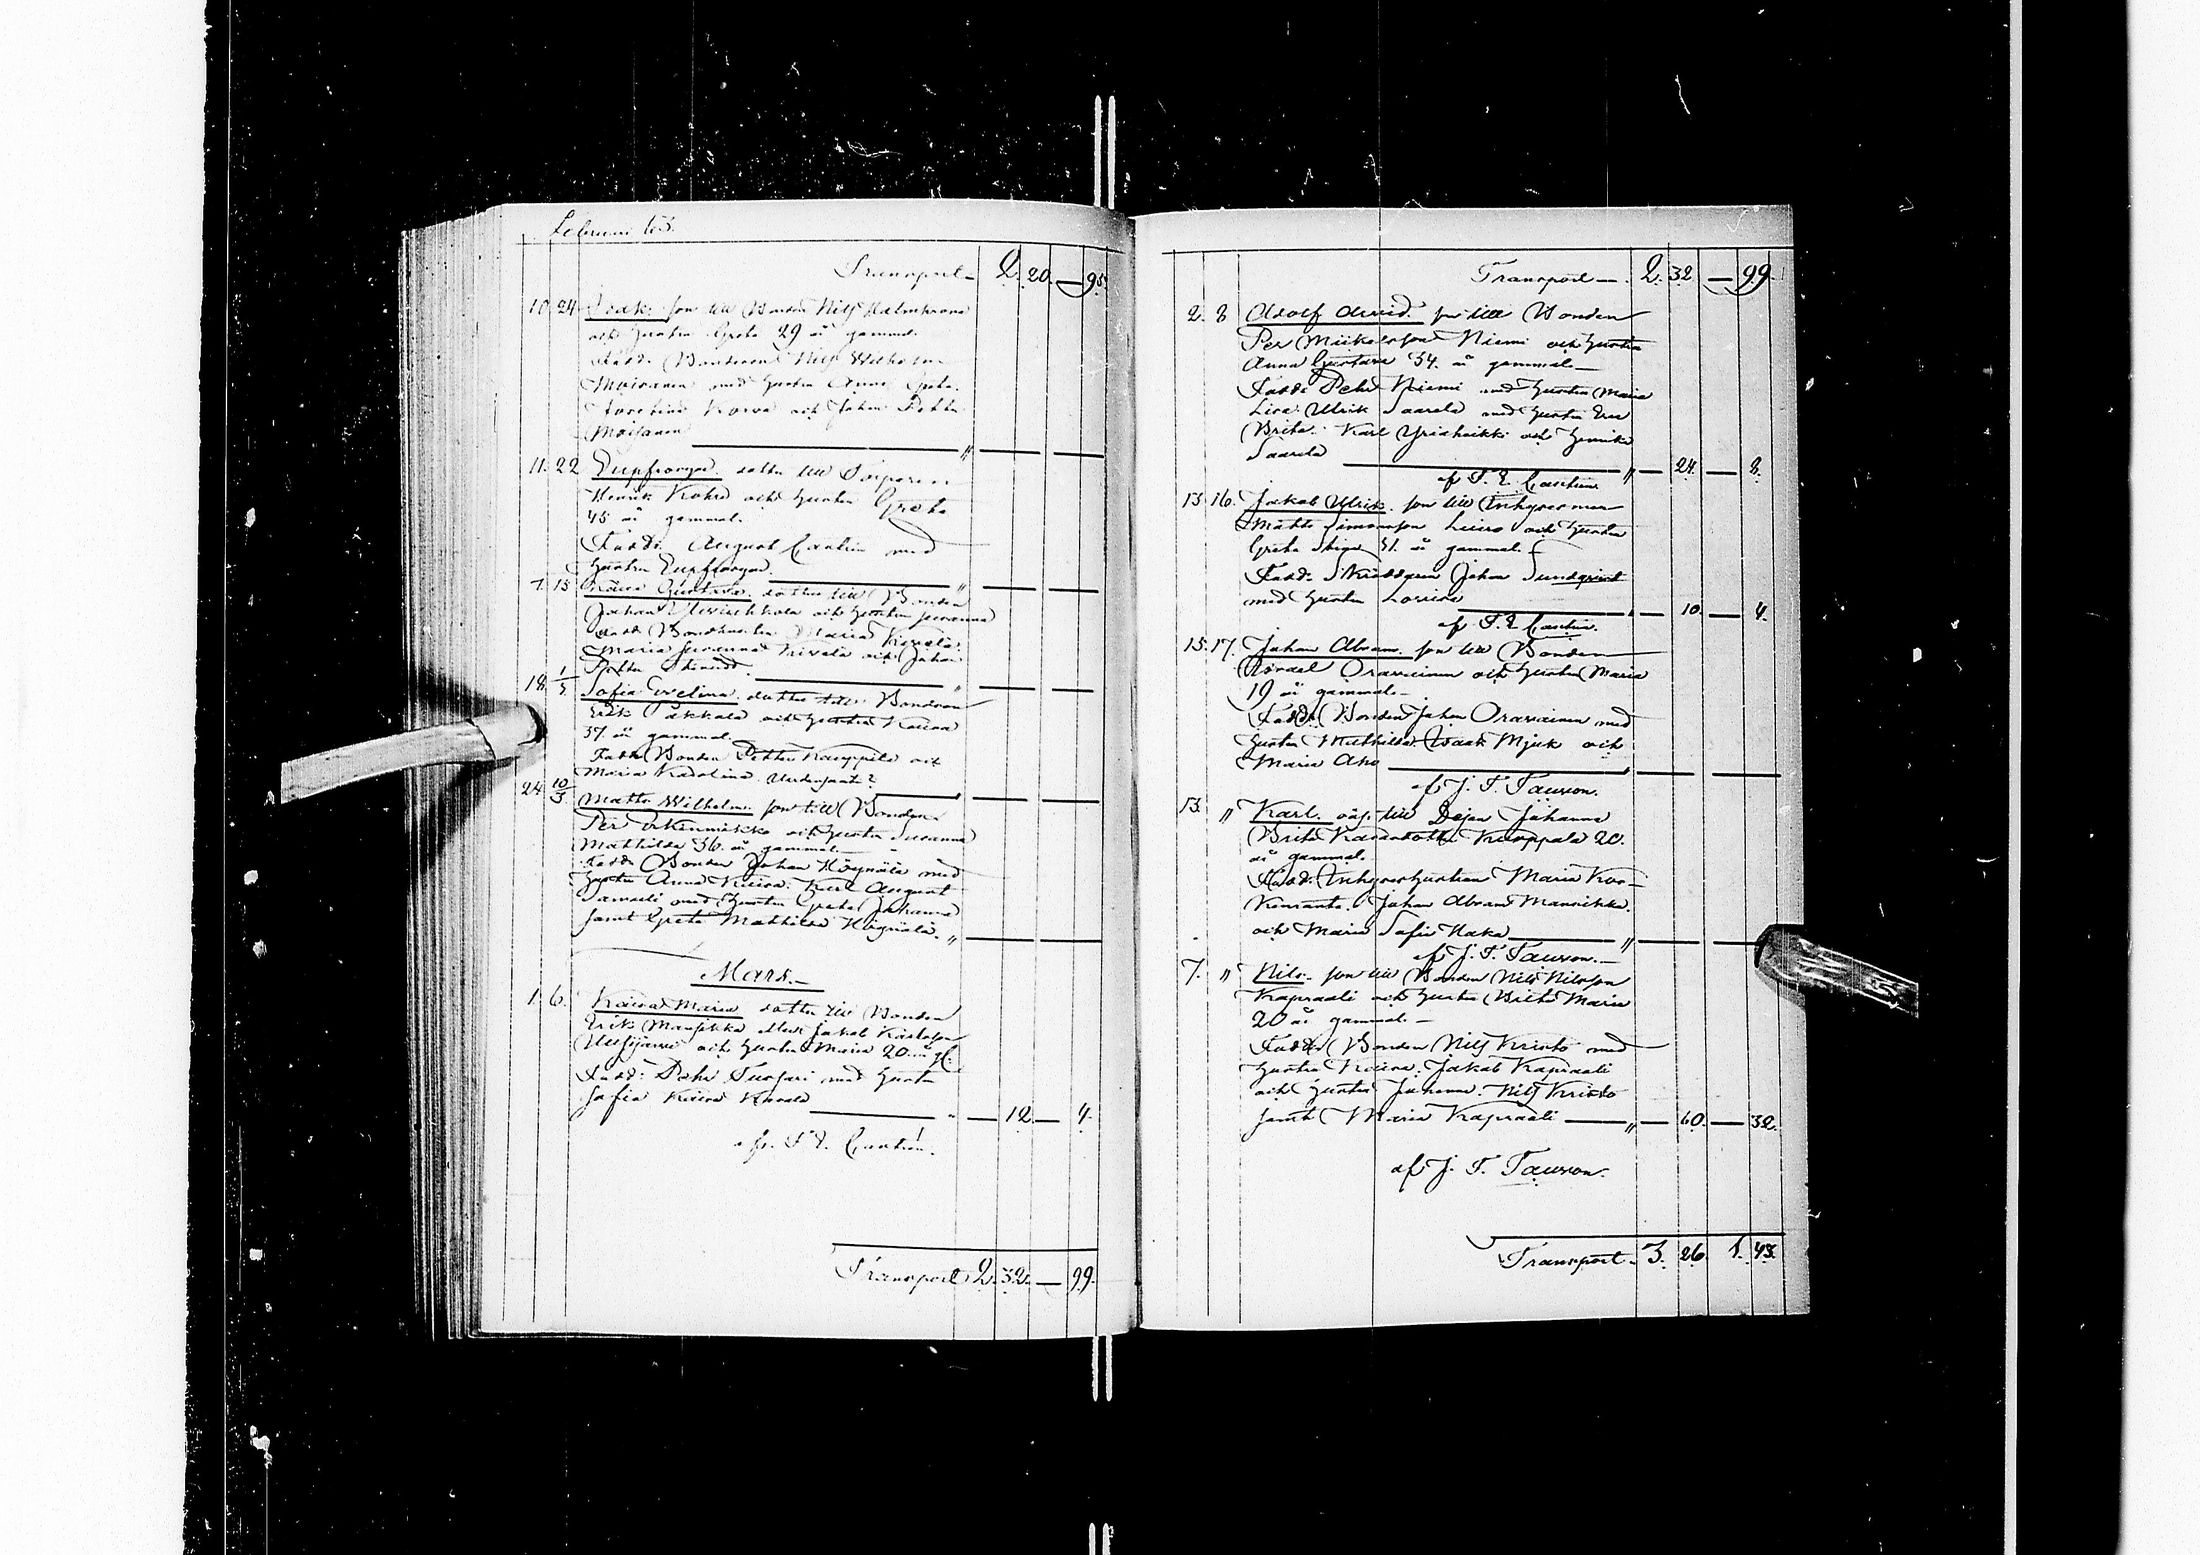 Februari 63.
Transport — 2. 20. — 95.
10. 24. Isak. son till Bonden Nils Halmkrona
och hustru Greta 29 år gammal.
Fadd: Bonden Nils Wilhelm
Moisanen med hustru Anna Greta.
Korva och Johan Petter
Moisanen — "
11. 22. Eupfrosyne. dotter till
Henrik Kohre och hustru Greta
45 år gammal.
Fadd: August Castrén med
hustru Eupfrosyne. — "
7. 15. Kaisa Gustava. dotter till Bonden
Johan och hustru Susanna
Fadd: Maria Kivelä.
Maria Susanna Kivelä och Johan
Petter — "
18. 1/3 Sofia Evelina. dotter till Bonden
Erik Pakkala och hustru Kaisa
37. år gammal.
Fadd: Bonden Petter Kauppila och
Maria Karolina — "
24. 10/3 Matts Wilhelm. son till Bonden
Per och hustru Susanna
Mathilda 36. år gammal. —
Fadd: Bonden Johan Höynälä med
hustru Anna Kaisa. Karl August
med hustru Greta Johanna
samt Greta Mathilda Höynälä. "
Mars. —
1. 6. Kaisa Maria dotter till Bonden
Erik Mansikka eller Jakob
och hustru Maria 20. år gl.
Fadd: Pehr med hustru
Sofia Kaisa — " — 12. — 4.
af F. E. Castrén.
Transport 2. 32. — 99.
Transport — 2. 32 — 99.
2. 8 Adolf Arvid. son till Bonden
Per Miikelsson Niemi och hustru
Anna Gustava 34. år gammal. —
Fadd: Pehr Niemi med hustru Maria
Lisa. Ulrik Saarela med hustru Eva
Brita. Karl Yriaheikki och Henrika
Saarela — " — 24. — 8.
af F. E. Castrén.
13. 16. Jakob Ulrik. son till Inhysesman
Matts Simonsson och hustru
Greta Stina 31. år gammal.
Fadd: Skräddaren Johan Sundqvist
med hustru Lovisa — " — 10. — 4.
af F. E. Castrén.
15. 17. Johan Abram. son till Bonden
Israel Oravainen och hustru Maria
19 år gammal. —
Fadd: Bonden Johan Oravainen med
hustru Mathilda. Isaak Mjuk och
Maria Aho — "
af J. F. Tauson.
13. " Karl. oäg. till Dejan Johanna
Brita Kauppala 20.
år gammal.
Fadd: Inhyseshustrun Maria
Johan Abram Mansikka.
och Maria Sofia Haka — "
af J. F. Tauson. —
7. " Nils. son till Bonden Nils Nilsson
Kapraali och hustru Brita Maria
20 år gammal. —
Fadd: Bonden Nils Kristo med
hustru Kaisa. Jakob Kapraali
och hustru Johanna. Nils Kristo
samt Maria Kapraali — " — 60. — 32.
af J. F. Tauson.
Transport — 3. 26. 1. 43.